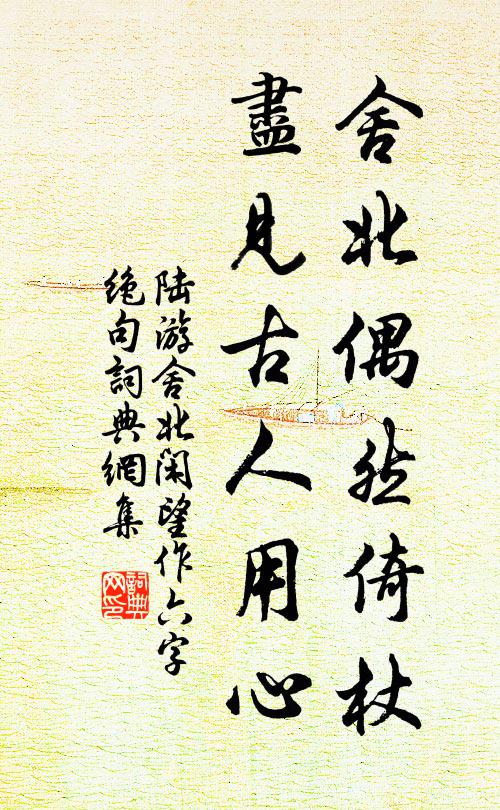 舍北偶然倚杖
盡見古人用心
陆游舍北闲望作六字
绝句詞典網集
詞典
网印